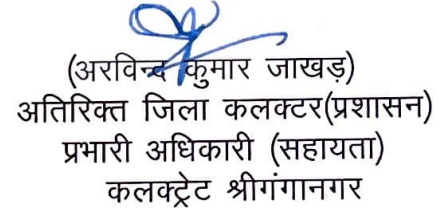 (अरविन्द कुमार जाखड़)
अतिरिक्त जिला कलक्टर(प्रशासन)
प्रभारी अधिकारी (सहायता)
कलक्ट्रेट श्रीगंगानगर